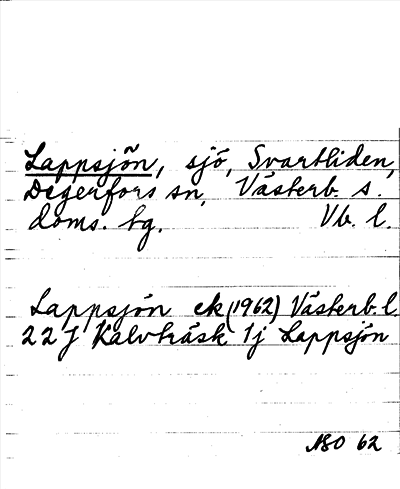 Lappsjön, sjö, Svartliden,
Degerfors sn, Västerb. s.
doms. tg. Vb. l.
Lappsjön ek (1962) Västerb. l
22 J Kalvträsk 1j Lappsjön
NSO 62